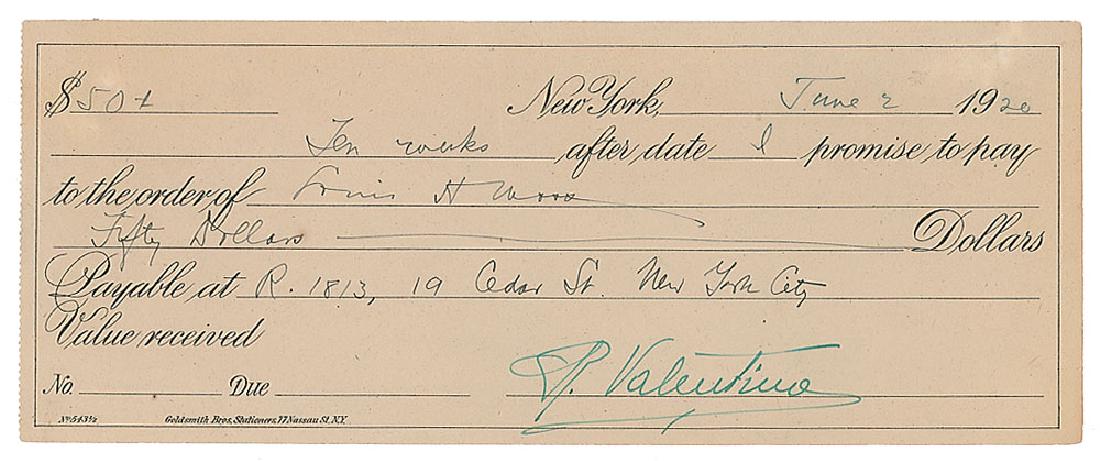 $ 50 + New York, June 2 1920
Ten weeks after date I promise to pay
to the order of Louis H
Fifty Dollars Dollars
Payable at R. 1813, 19 Cedar St. New York City
Value received
No. Due R. Valentino
No 543½ Goldsmith Bros, Stationers, 77 Nassau St, N.Y.